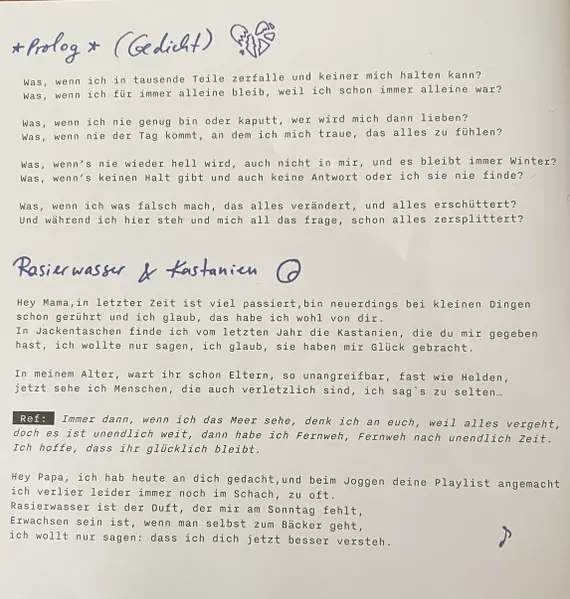 *Prolog* (Gedicht)
Was, wenn ich in tausende Teile zerfalle und keiner mich halten kann?
Was, wenn ich für immer alleine bleib, weil ich schon immer alleine war?
Was, wenn ich nie genug bin oder kaputt, wer wird mich dann lieben?
Was, wenn nie der Tag kommt, an dem ich mich traue, das alles zu fühlen?
Was, wenn's nie wieder hell wird, auch nicht in mir, und es bleibt immer Winter?
Was, wenn's keinen Halt gibt und auch keine Antwort oder ich sie nie finde?
Was, wenn ich was falsch mach, das alles verändert, und alles erschüttert?
Und während ich hier steh und mich all das frage, schon alles zersplittert?
Rasierwasser & Kastanien
Hey Mama,in letzter Zeit ist viel passiert,bin neuerdings bei kleinen Dingen
schon gerührt und ich glaub, das habe ich wohl von dir.
In Jackentaschen finde ich vom letzten Jahr die Kastanien, die du mir gegeben
hast, ich wollte nur sagen, ich glaub, sie haben mir Glück gebracht.
In meinem Alter, wart ihr schon Eltern, so unangreifbar, fast wie Helden,
jetzt sehe ich Menschen, die auch verletzlich sind, ich sag`s zu selten…
Ref: Immer dann, wenn ich das Meer sehe, denk ich an euch, weil alles vergeht,
doch es ist unendlich weit, dann habe ich Fernweh, Fernweh nach unendlich Zeit.
Ich hoffe, dass ihr glücklich bleibt.
Hey Papa, ich hab heute an dich gedacht,und beim Joggen deine Playlist angemacht
ich verlier leider immer noch im Schach, zu oft.
Rasierwasser ist der Duft, der mir am Sonntag fehlt,
Erwachsen sein ist, wenn man selbst zum Bäcker geht,
ich wollt nur sagen: dass ich dich jetzt besser versteh.